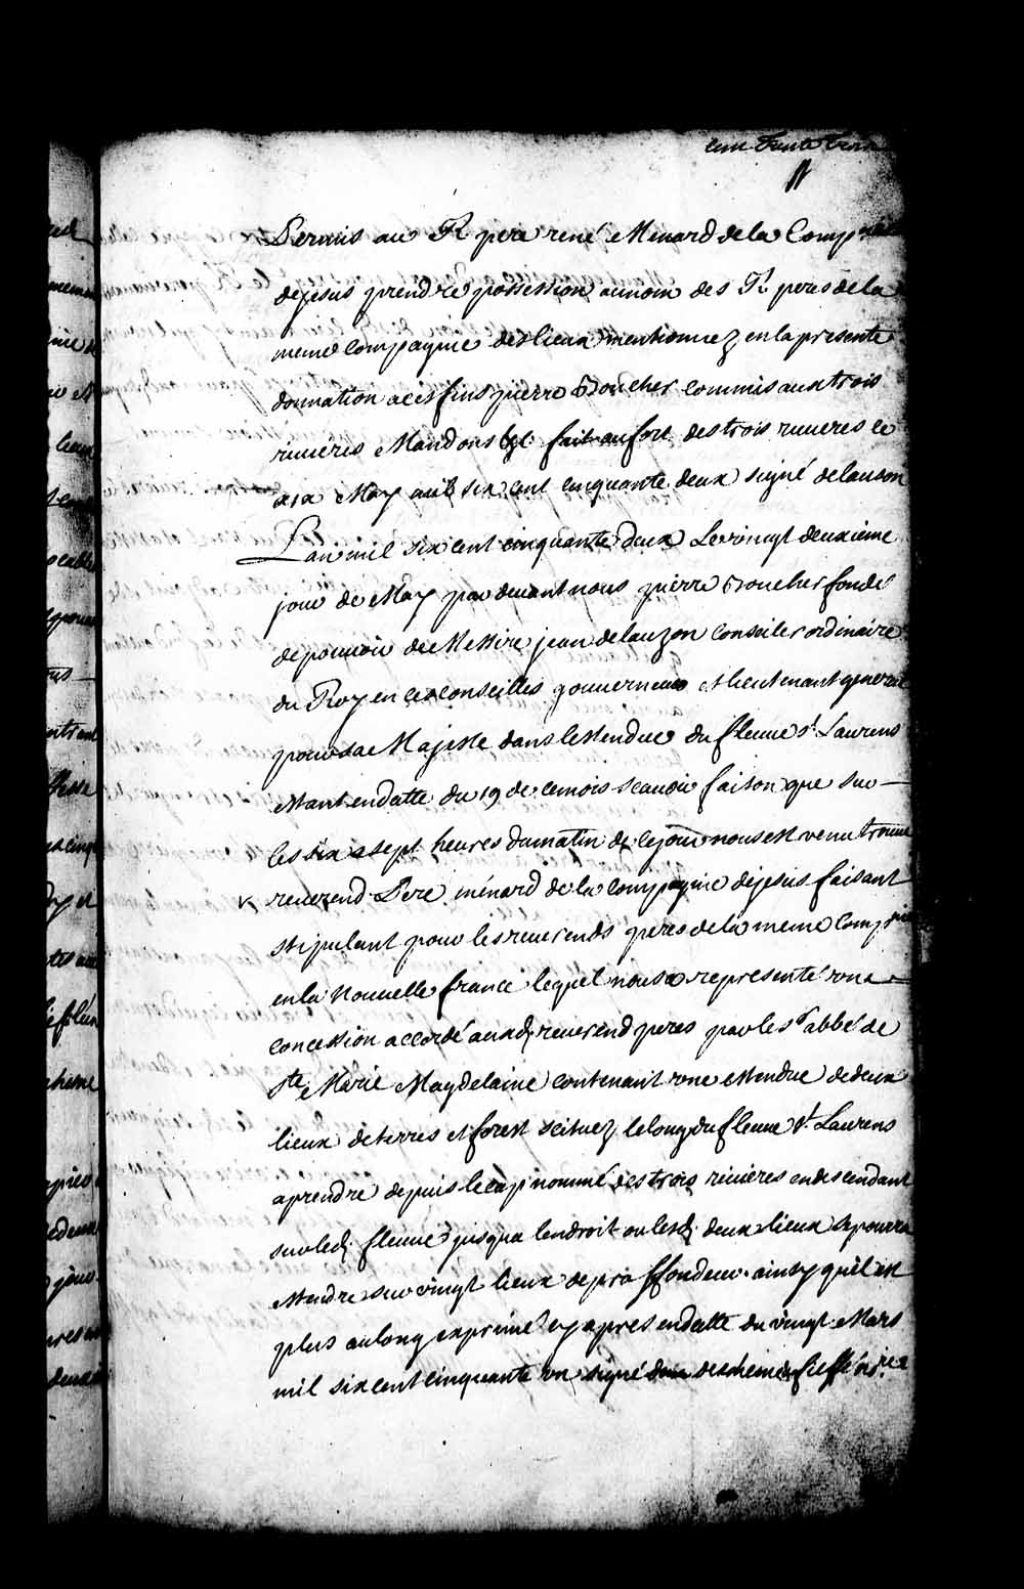 cent trente trois
Permis au R pere rené Menard dela Compagnie
dejesus prendre possession aunom des R peres dela
meme Compagnie des lieux mentionnez enla presente
donnation acest fins pierre Boucher Commis aux trois
riuieres Mandons &c. fait aufort des trois riuieres le
May mil six cent cinquante deux signé delauson
Lan mil six cent cinquante deux Le vingt deuxieme
jour de May par deuant nous pierre Boucher fondé
depouuoir de Messire jean delauzon Conseiller ordinaire
du Roy en ces conseilles gouuerneur et lieutenant general
pour sa Majesté dans lestendue du fleuue st. Laurens
estant endatte du 19 de cemois scauoir faison que sur
les six a sept heures dumatin de cejour nous est venu trouuer
reuerend Pere ménard de la compagnie dejesus faisant
stipulant pour les reuerends peres dela meme Compagnie
enla Nouuelle france lequel nous a representé vne
concession accordé auxd. reuerend peres par le sr. abbé de
ste. Marie Magdelaine contenant vne estendue de deux
lieux de terres et forest scituez le long du fleuue st. Laurens
aprendre depuis le cap nommé des trois riuieres en descendant
sur led. fleuue jusqua lendroit ou lesd. deux lieux se pourra
estendre sur vingt lieux de proffondeur ainsy quil est
plus aulong exprimé cy apres endatte du vingt Mars
mil six cent cinquante vn signé